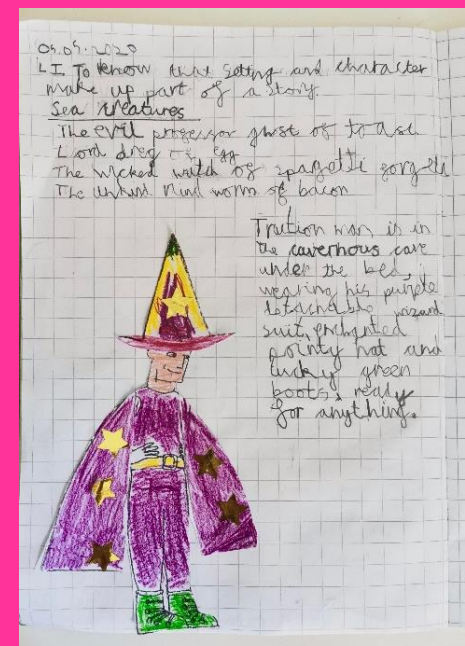 05.05.2020
LI To know that setting and character
make up part of a story.
Sea creatures
The evil professor of toast
Lord of egg
The wicked witch of spagetti
The unkind worm of bacon
man is in
the cavernous cave
under the bed,
wearing his purple
detachable wizard
suit, enchanted
pointy hat and
lucky green
boots, ready
for anything.